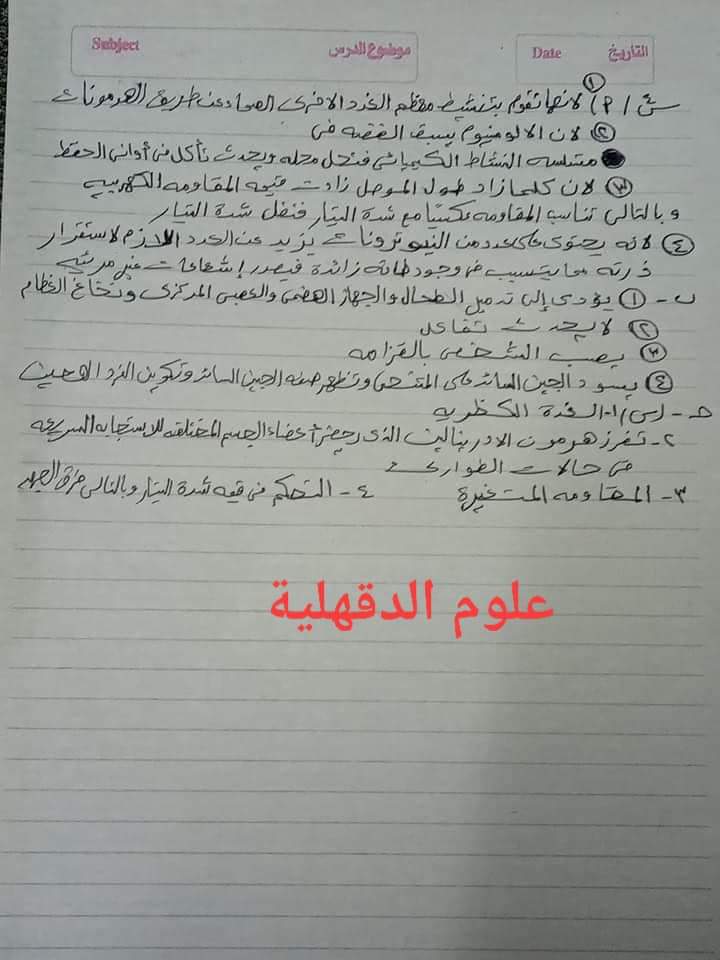 التاريخ Date
موضوع الدرس Subject
س٤ / (٢) ① لانها تقوم بتنشيط معظم الغدد الاخرى الصماء عن طريق الهرمونات
② لان الالومنيوم يسبق الفضه فى
متسلسه النشاط الكيميائى فتحل محله ويحدث تأكل فى أوانى الحفظ
③ لان كلما زاد طول الموصل زادت قيمة المقاومه الكهربيه
وبالتالى تناسب المقاومه عكسيا مع شدة التيار فتقل شدة التيار
④ لانه يحتوى على عدد من النيوترونات يزيد عن العدد اللازم لاستقرار
ذرته مما يتسبب فى وجود طاقه زائدة فيصدر إشعاعات غير مرئيه
ب - ① يؤدى إلى تدمير الطحال والجهاز الهضمى والعصبى المركزى ونخاع العظام
② لا يحدث تفاعل
③ يصب الشخص بالقزامه
④ يسود الجين السائد على المتنحى وتظهر صفه الجين السائد وتكوين الفرد الهجين
حـ - (س) ١- الغدة الكظريه
٢- تفرز هرمون الادرينالين الذى يحفز أعضاء الجسم المختلفه للاستجابه السريعه
فى حالات الطوارئ
٣- المقاومه المتغيرة ٤- التحكم فى قيمه شدة التيار وبالتالى فرق الجهد
علوم الدقهلية